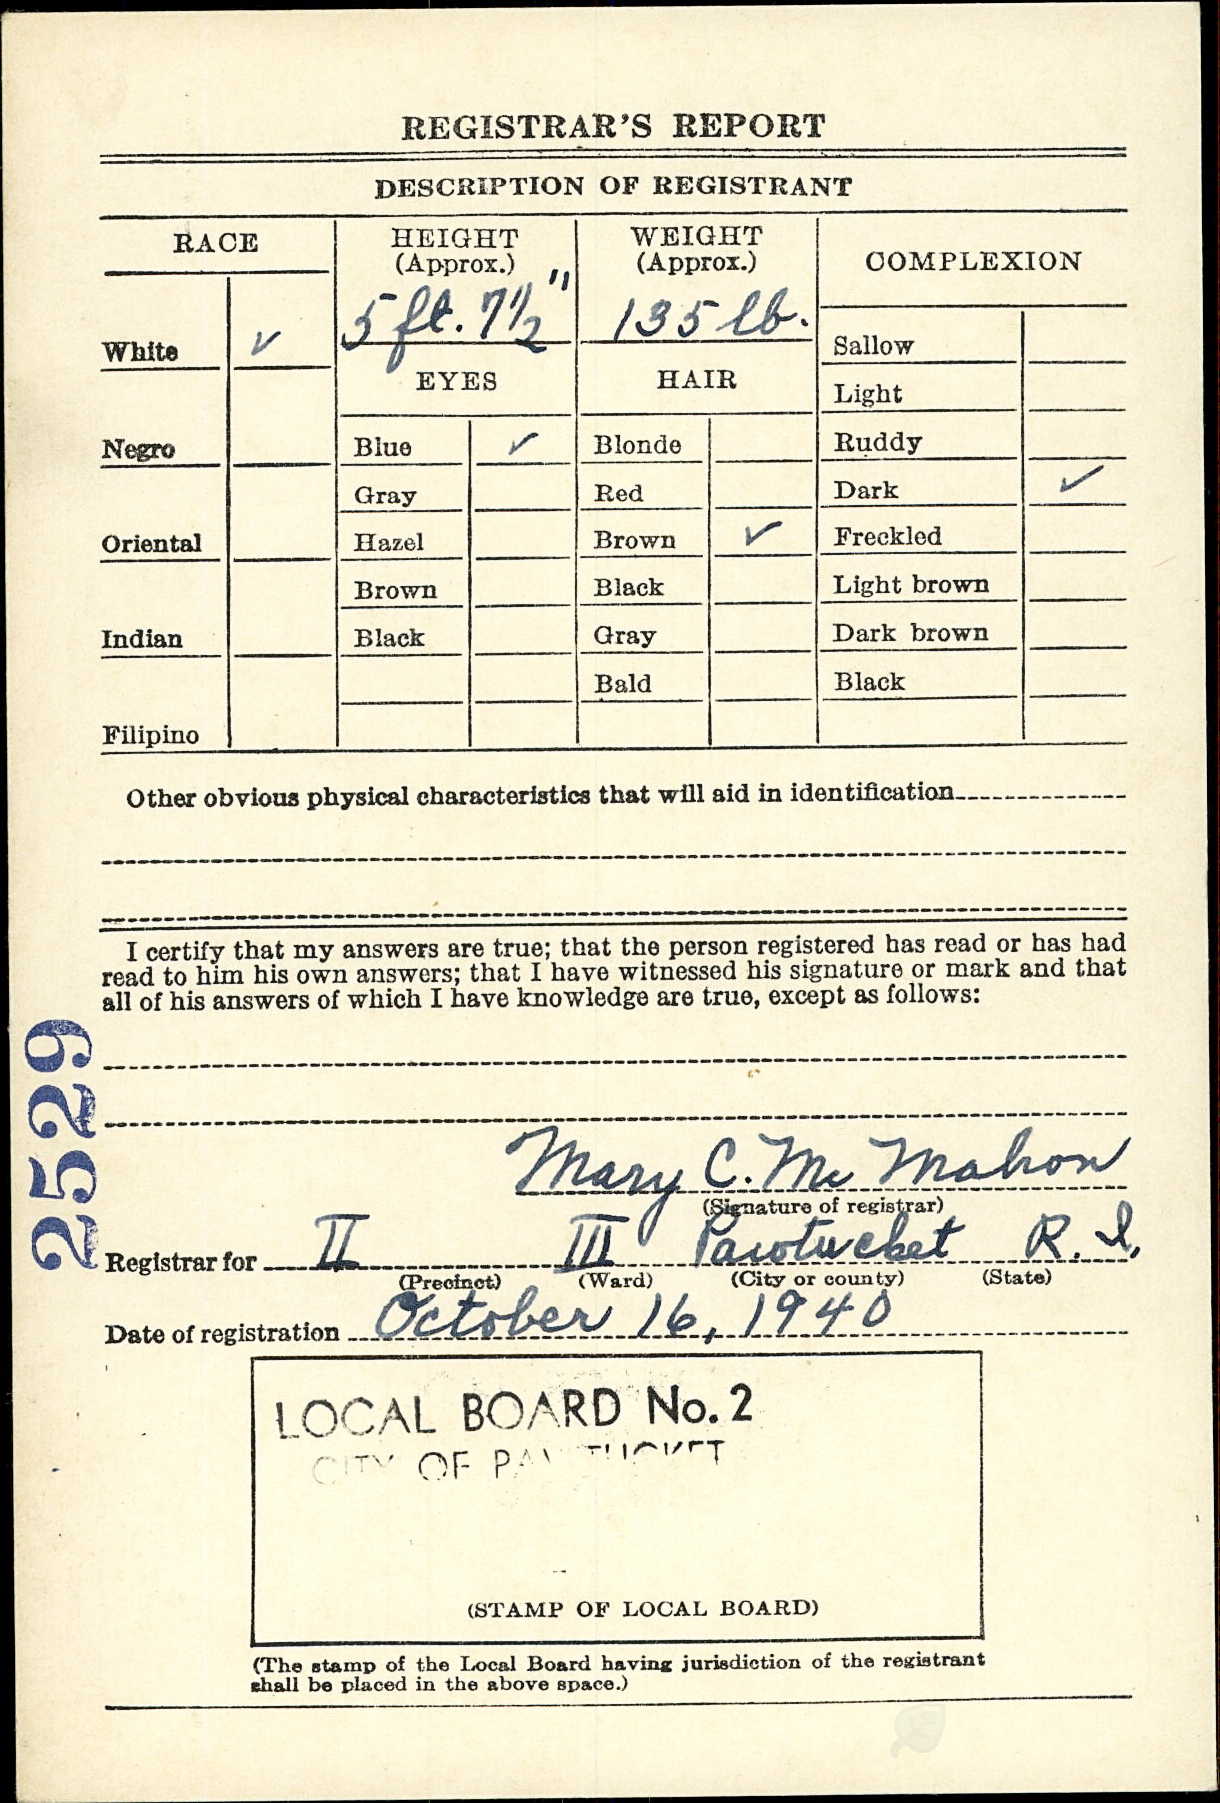 REGISTRAR'S REPORT
DESCRIPTION OF REGISTRANT
RACE
HEIGHT
(Approx.)
WEIGHT
(Approx.)
COMPLEXION
5 ft. 7 1/2"
135 lb.
White ✓
EYES
HAIR
Sallow
Light
Negro
Blue ✓
Blonde
Ruddy
Gray
Red
Dark ✓
Oriental
Hazel
Brown ✓
Freckled
Brown
Black
Light brown
Indian
Black
Gray
Dark brown
Bald
Black
Filipino
Other obvious physical characteristics that will aid in identification
I certify that my answers are true; that the person registered has read or has had
read to him his own answers; that I have witnessed his signature or mark and that
all of his answers of which I have knowledge are true, except as follows:
2529
Mary C. Mc Mahon
(Signature of registrar)
Registrar for II III Pawtucket R. I.
(Precinct) (Ward) (City or county) (State)
Date of registration October 16, 1940
LOCAL BOARD No. 2
CITY OF PAWTUCKET
(STAMP OF LOCAL BOARD)
(The stamp of the Local Board having jurisdiction of the registrant
shall be placed in the above space.)